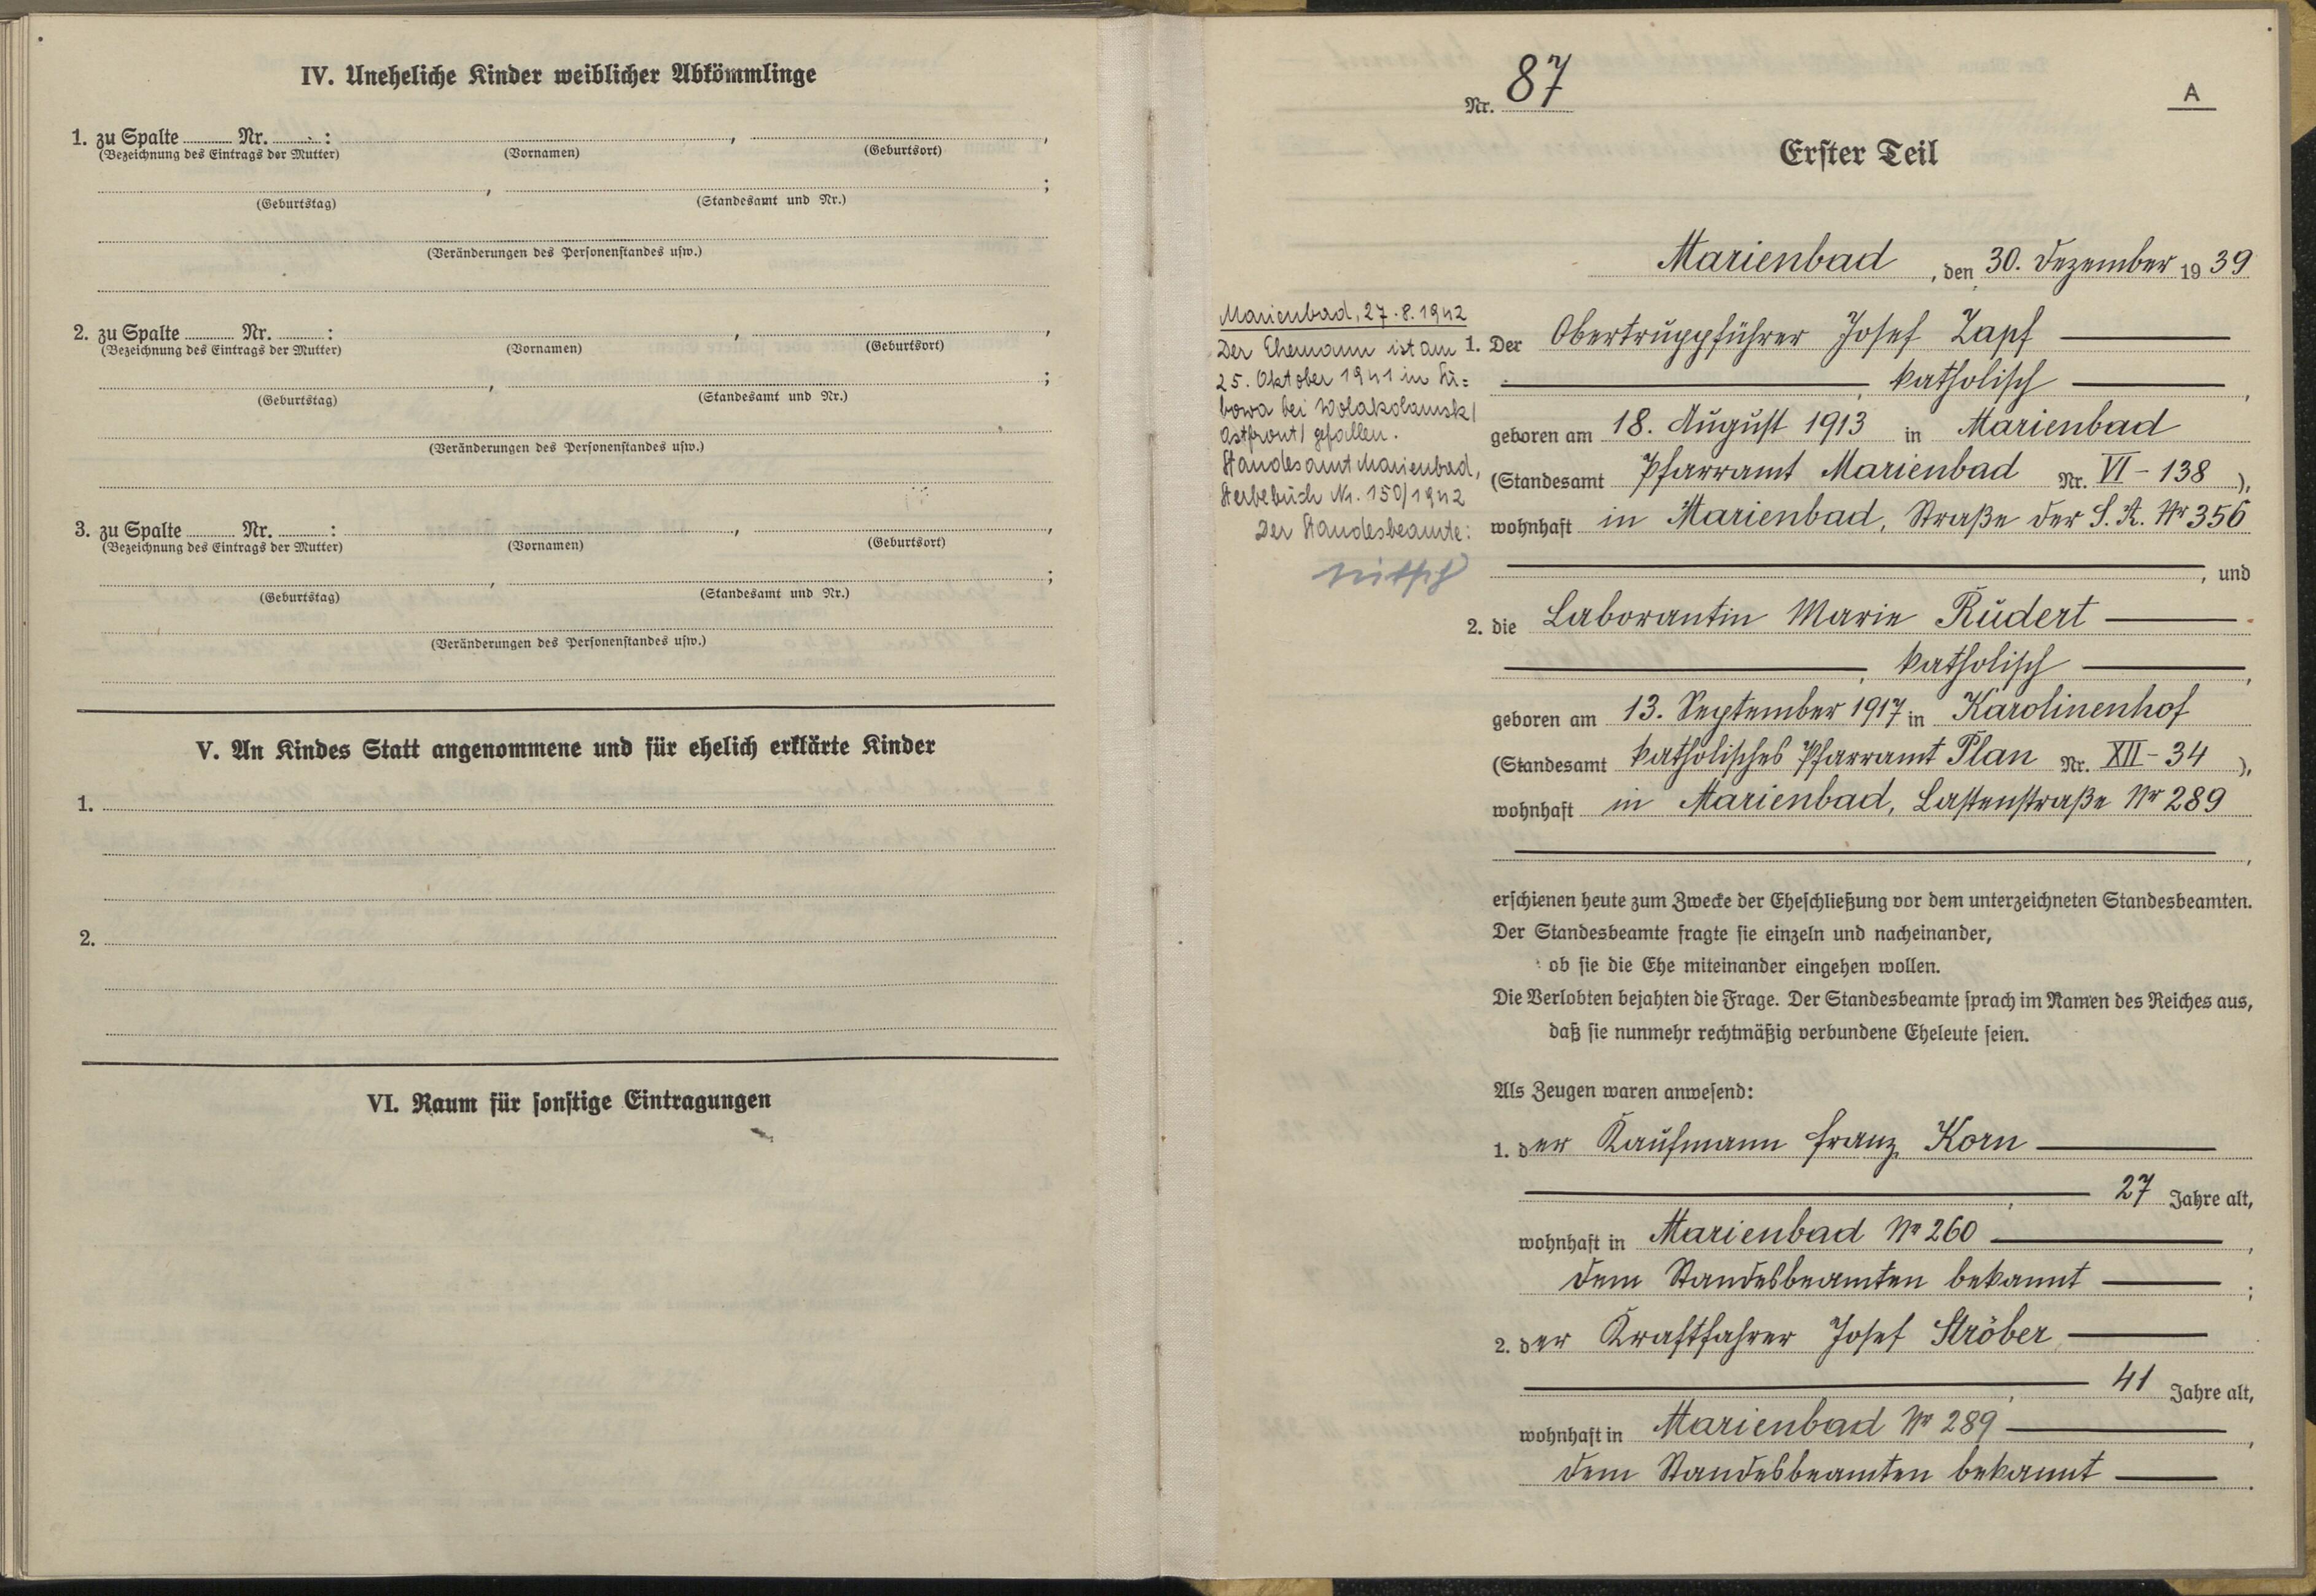 IV. Uneheliche Kinder weiblicher Abkömmlinge
1. zu Spalte ........ Nr. ........ : , ,
(Bezeichnung des Eintrags der Mutter) (Vornamen) (Geburtsort)
, ;
(Geburtstag) (Standesamt und Nr.)
(Veränderungen des Personenstandes usw.)
2. zu Spalte ........ Nr. ........ : , ,
(Bezeichnung des Eintrags der Mutter) (Vornamen) (Geburtsort)
, ;
(Geburtstag) (Standesamt und Nr.)
(Veränderungen des Personenstandes usw.)
3. zu Spalte ........ Nr. ........ : , ,
(Bezeichnung des Eintrags der Mutter) (Vornamen) (Geburtsort)
, ;
(Geburtstag) (Standesamt und Nr.)
(Veränderungen des Personenstandes usw.)
V. An Kindes Statt angenommene und für ehelich erklärte Kinder
1.
2.
VI. Raum für sonstige Eintragungen
Nr. 87
A
Erster Teil
Marienbad, den 30. Dezember 1939
Marienbad, 27.8.1942
Der Ehemann ist am
25. Oktober 1941 in Lu=
bowa bei Wolakolamsk/
Ostfront/ gefallen.
Standesamt Marienbad,
Sterbebuch Nr. 150/1942
Der Standesbeamte:
1. Der Obertruppführer Josef Zapf
, katholisch ,
geboren am 18. August 1913 in Marienbad
(Standesamt Pfarramt Marienbad Nr. VI-138 ),
wohnhaft in Marienbad, Straße der S.A. Nr 356
, und
2. die Laborantin Marie Rudert
, katholisch ,
geboren am 13. September 1917 in Karolinenhof
(Standesamt katholisches Pfarramt Plan Nr. XII-34 ),
wohnhaft in Marienbad, Lastenstraße Nr 289
,
erschienen heute zum Zwecke der Eheschließung vor dem unterzeichneten Standesbeamten.
Der Standesbeamte fragte sie einzeln und nacheinander,
ob sie die Ehe miteinander eingehen wollen.
Die Verlobten bejahten die Frage. Der Standesbeamte sprach im Namen des Reiches aus,
daß sie nunmehr rechtmäßig verbundene Eheleute seien.
Als Zeugen waren anwesend:
1. der Kaufmann Franz Korn
, 27 Jahre alt,
wohnhaft in Marienbad Nr 260 ,
dem Standesbeamten bekannt ;
2. der Kraftfahrer Josef Ströber
, 41 Jahre alt,
wohnhaft in Marienbad Nr 289 ,
dem Standesbeamten bekannt .